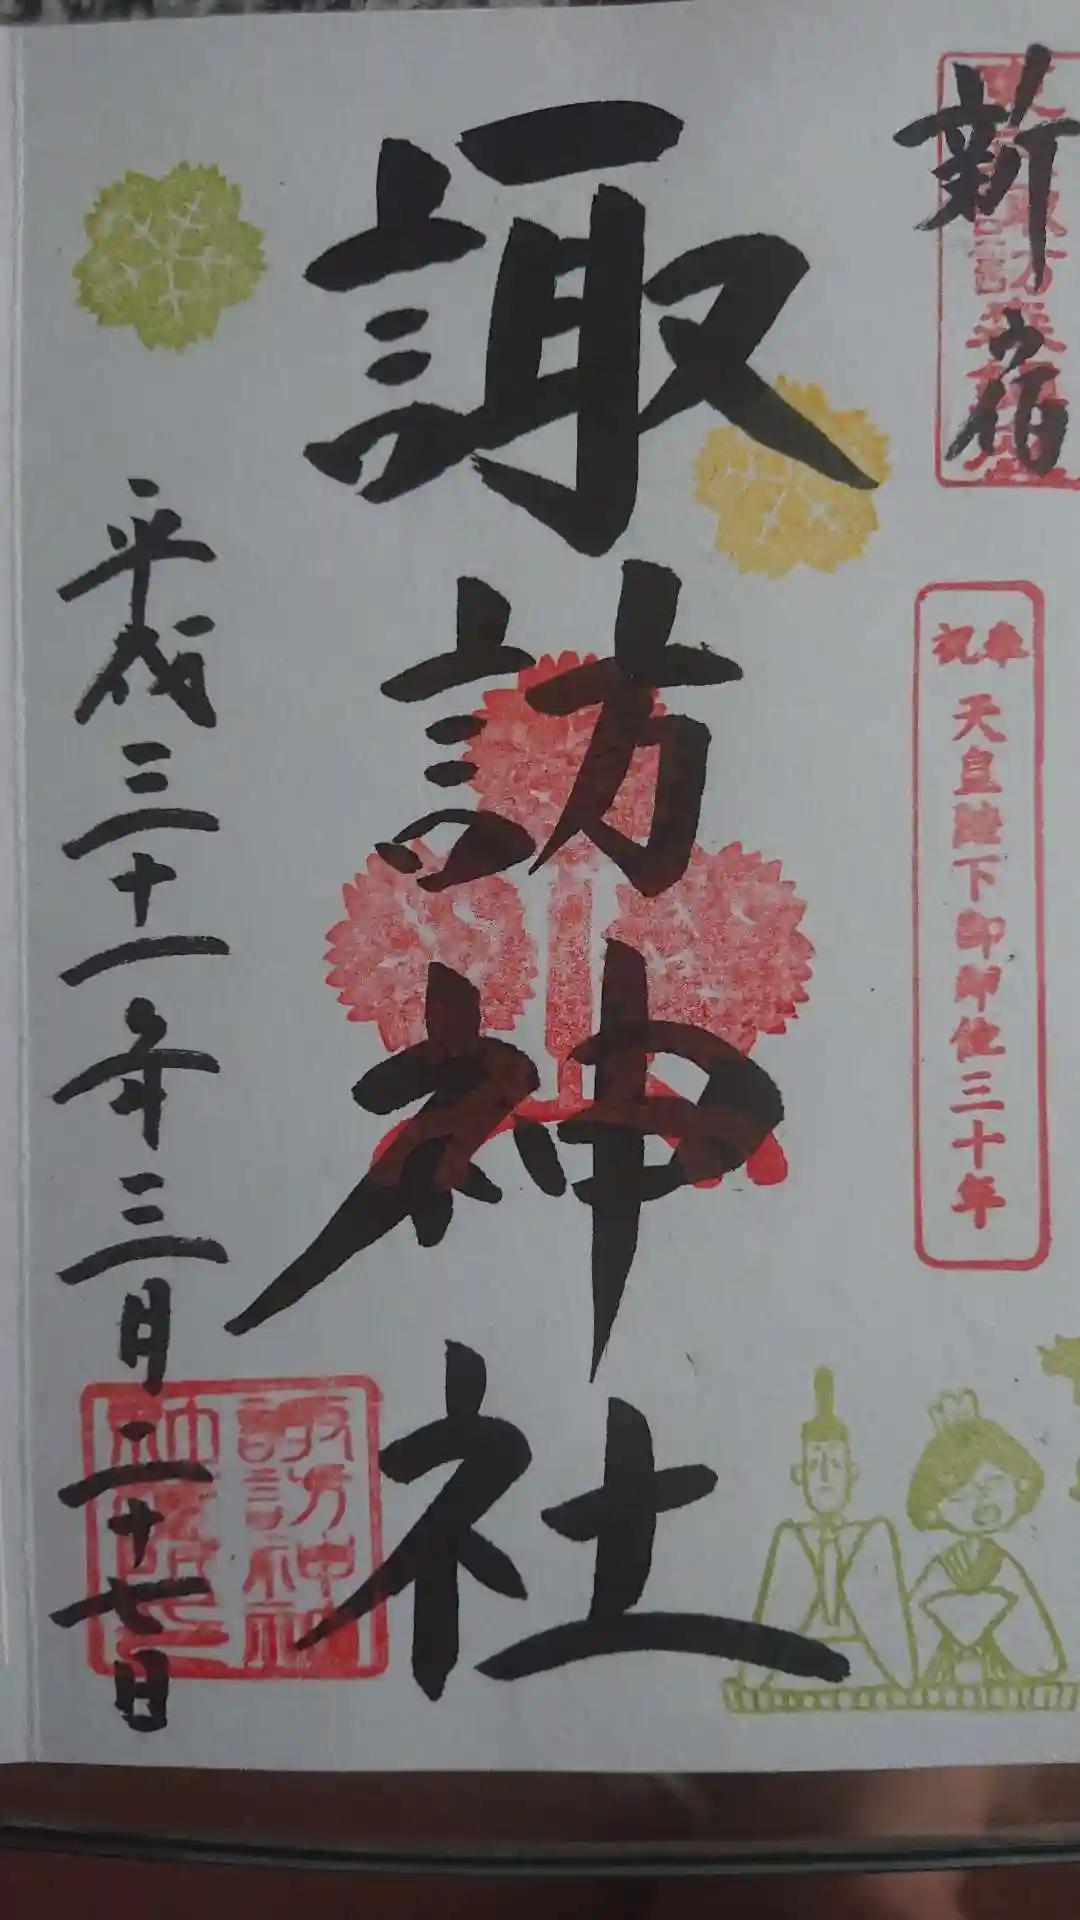 新宿
奉祝
天皇陛下御即位三十年
諏訪神社
平成三十一年三月二十七日
諏訪神社